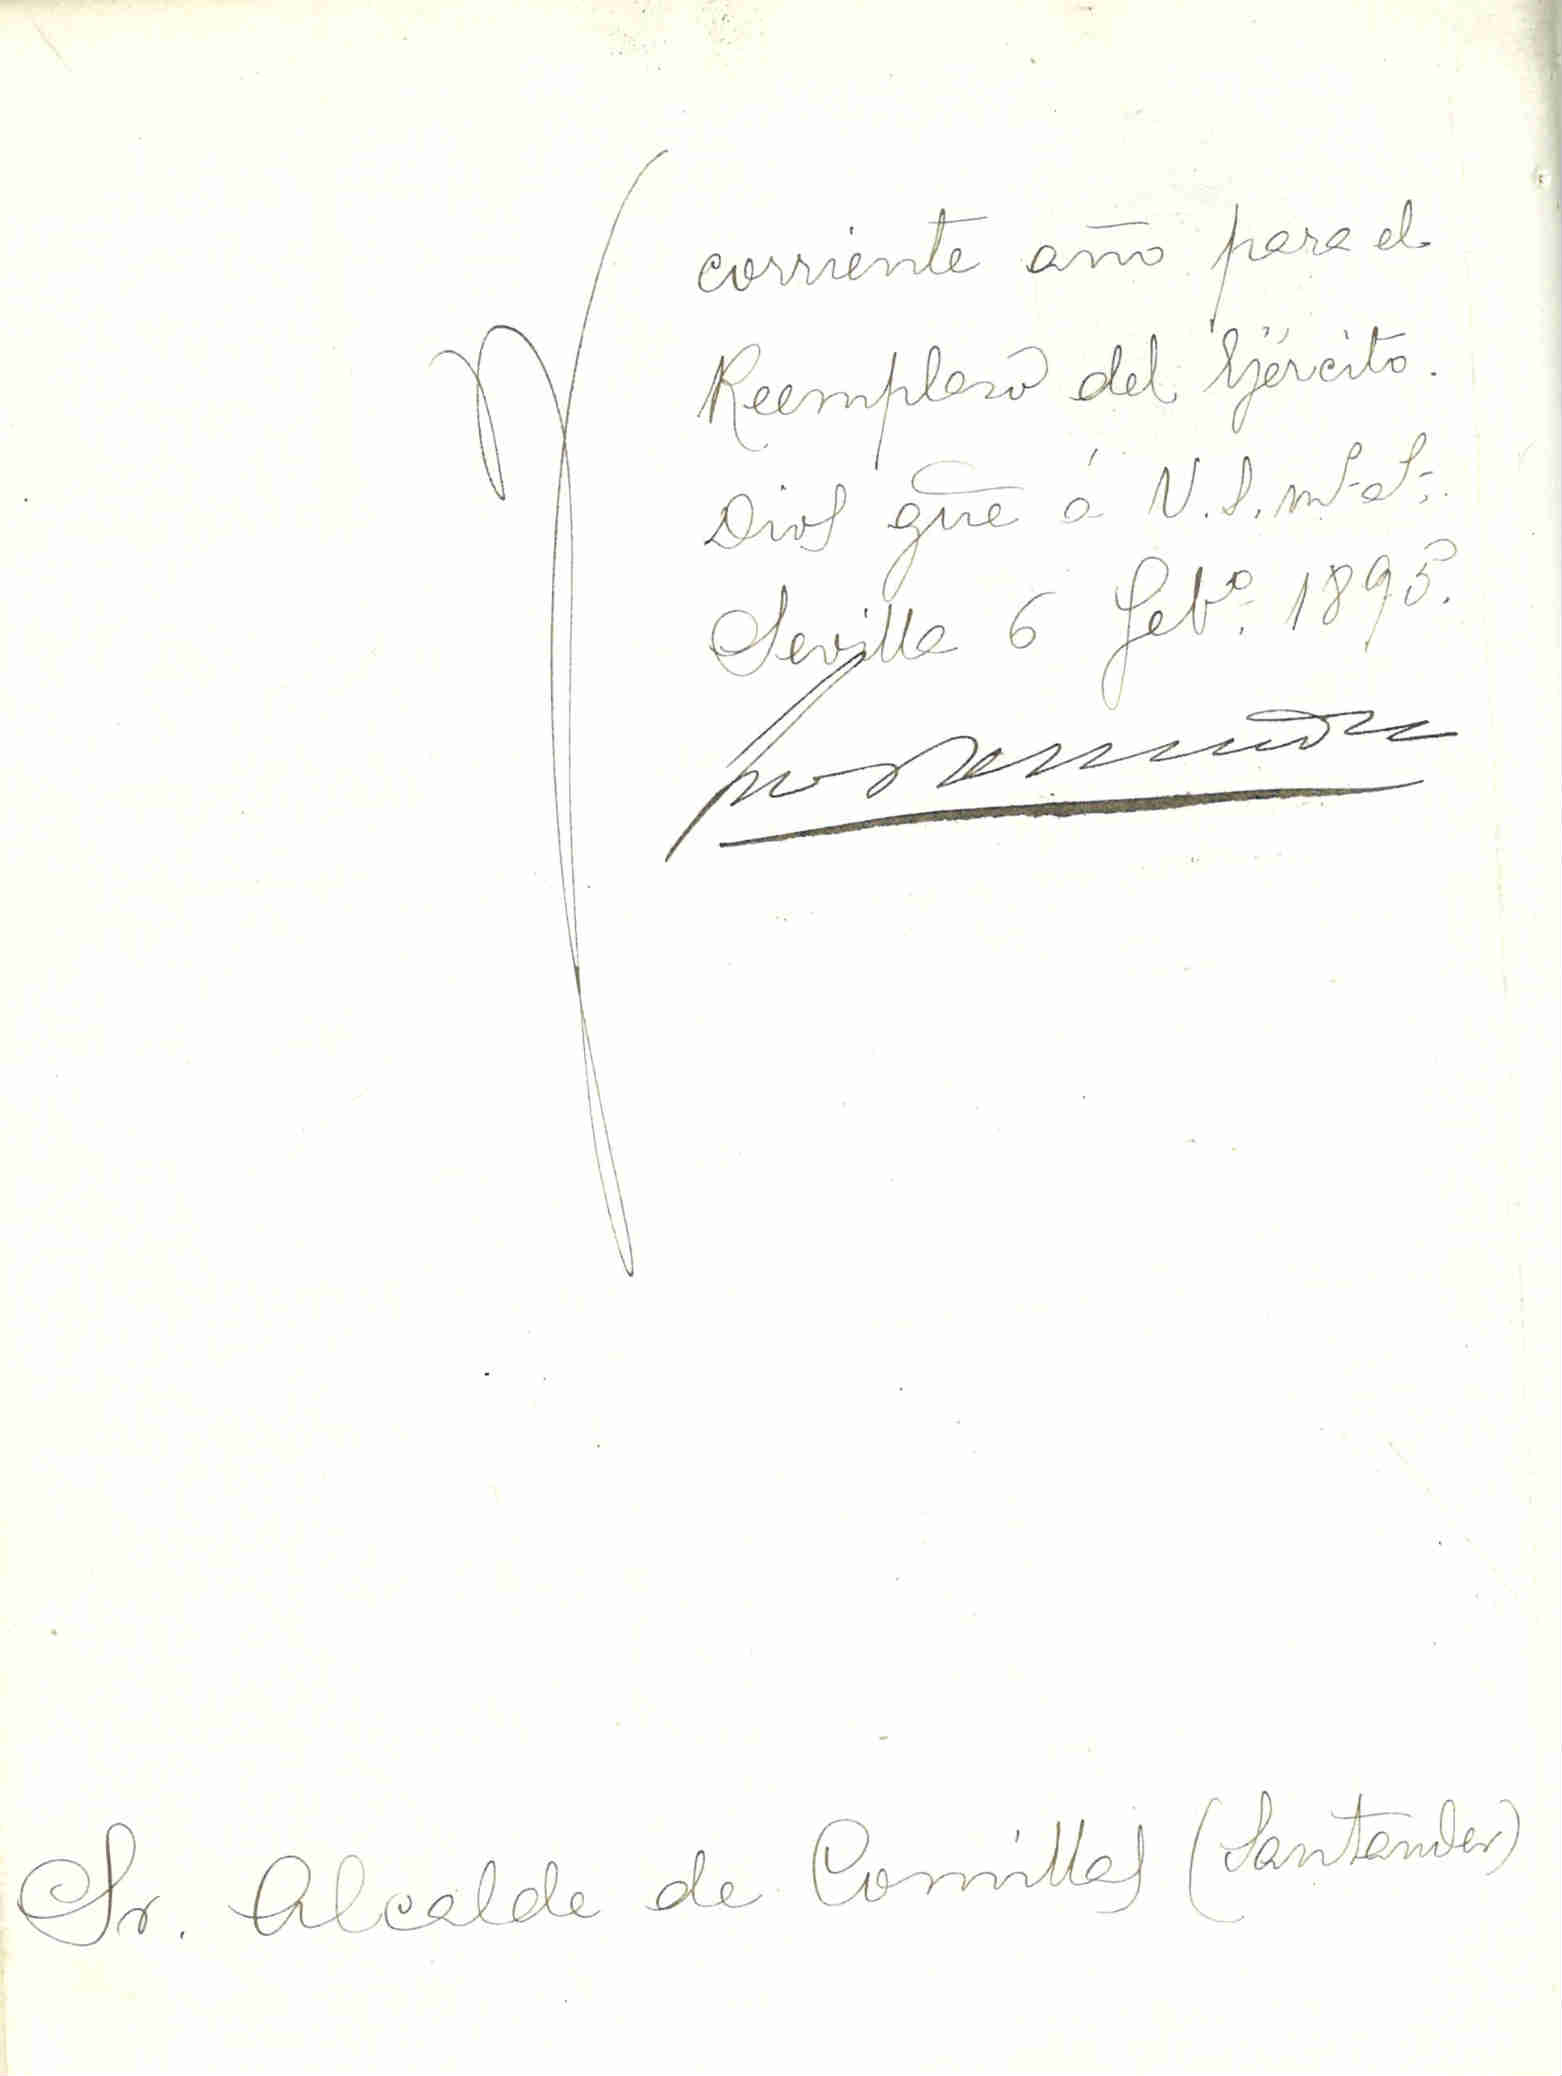 corriente año para el
Reemplazo del Ejército.
Dios gue á V. S. ms as.
Sevilla 6 Febo. 1895.
Sr. Alcalde de Comillas (Santander)